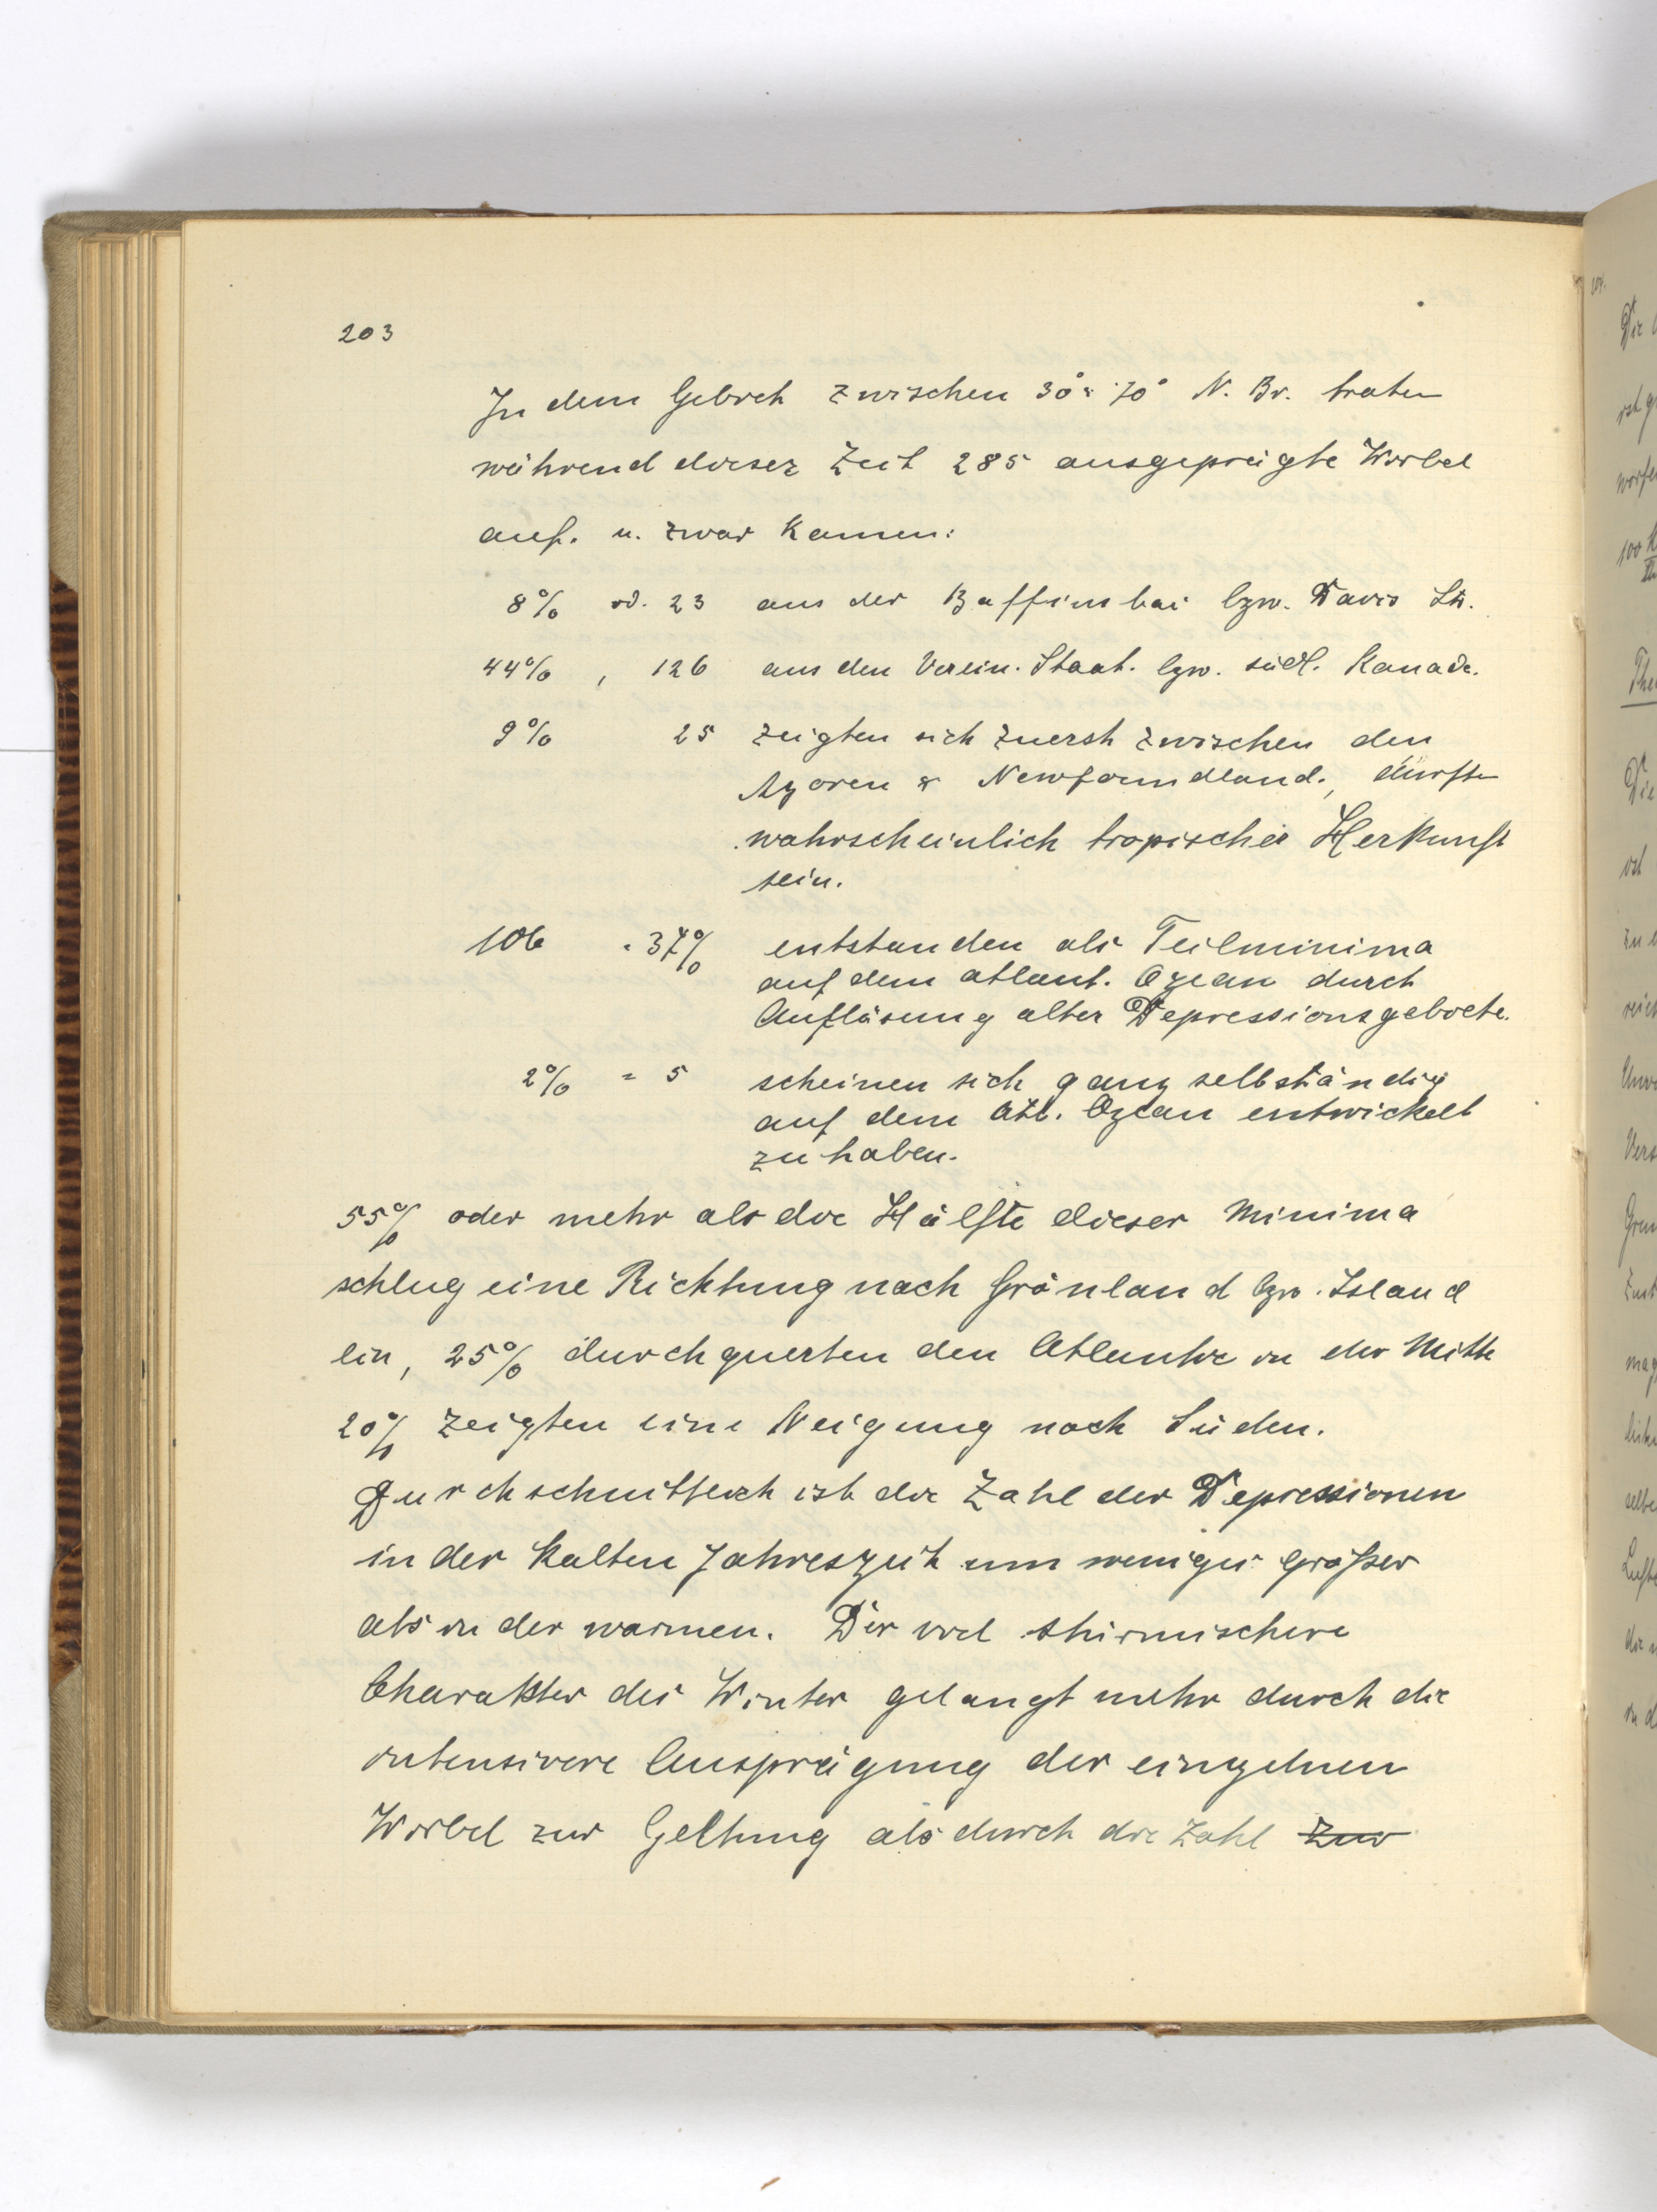 203
In dem Gebiet zwischen 30° & 70° N. Br. traten
während dieser Zeit 285 ausgeprägte Wirbel
auf. u. zwar kamen:
8% od. 23 aus der Baffinsbai bzw. Davis Str.
44% , 126 aus den Verein. Staat. bzw. südl. Kanada.
9% 25 zeigten sich zuerst zwischen den
Azoren & Newfoundland., dürften
wahrscheinlich tropischer Herkunft
sein.
106 = 37% entstanden als Teilminima
auf dem atlant. Ozean durch
Auflösung alter Depressionsgebiete.
2% = 5 scheinen sich ganz selbständig
auf dem Atl. Ozean entwickelt
zu haben.
55% oder mehr als die Hälfte dieser Minima
schlug eine Richtung nach Grönland bzw. Island
ein, 25% durchquerten den Atlantic in der Mitte
20% zeigten eine Neigung nach Süden.
Durchschnittlich ist die Zahl der Depressionen
in der kalten Jahreszeit um weniges größer
als in der warmen. Der viel stürmischere
Charakter des Winter gelangt mehr durch die
intensivere Ausprägung der einzelnen
Wirbel zur Geltung als durch die Zahl zur
104.
Die
ist g
worfe
100
The
Die
ist
zu
reich
Vers
mag
selbe
Luft
die
in d